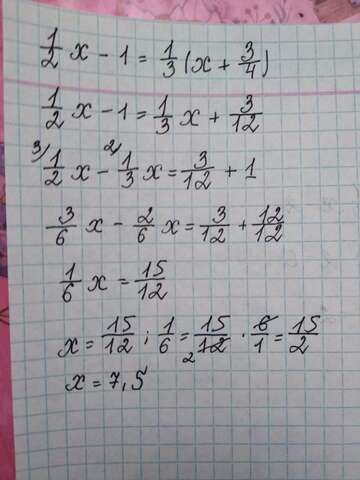 1/2 x - 1 = 1/3 (x + 3/4)
1/2 x - 1 = 1/3 x + 3/12
3/ 1/2 x - 2/ 1/3 x = 3/12 + 1
3/6 x - 2/6 x = 3/12 + 12/12
1/6 x = 15/12
x = 15/12 ; 1/6 = 15/12 2 · 6/1 = 15/2
x = 7,5